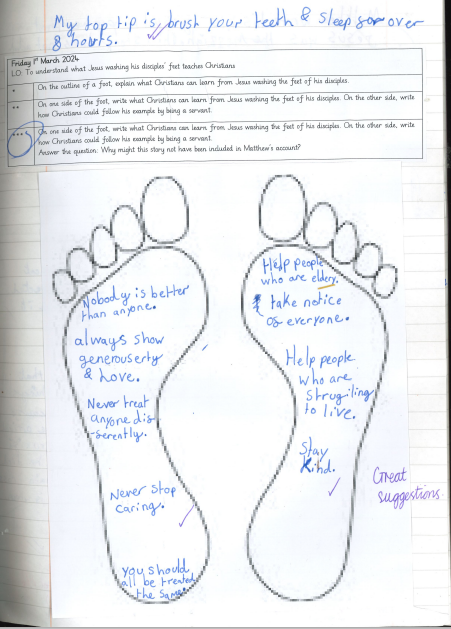 My top tip is, brush your teeth & sleep for over
8 hours.
Friday 1st March 2024
LO: To understand what Jesus washing his disciples' feet teaches Christians
* On the outline of a foot, explain what Christians can learn from Jesus washing the feet of his disciples.
** On one side of the foot, write what Christians can learn from Jesus washing the feet of his disciples. On the other side, write
how Christians could follow his example by being a servant.
*** On one side of the foot, write what Christians can learn from Jesus washing the feet of his disciples. On the other side, write
how Christians could follow his example by being a servant.
Answer the question: Why might this story not have been included in Matthew's account?
Nobody is better
than anyone.
always show
generouserty
& Love.
Never treat
anyone dis
-serently.
Never stop
caring.
you should
all be treated
the same.
Help people
who are eldery.
take notice
of everyone.
Help people
who are
strugiling
to live.
Stay
Kind.
Great
suggestions.